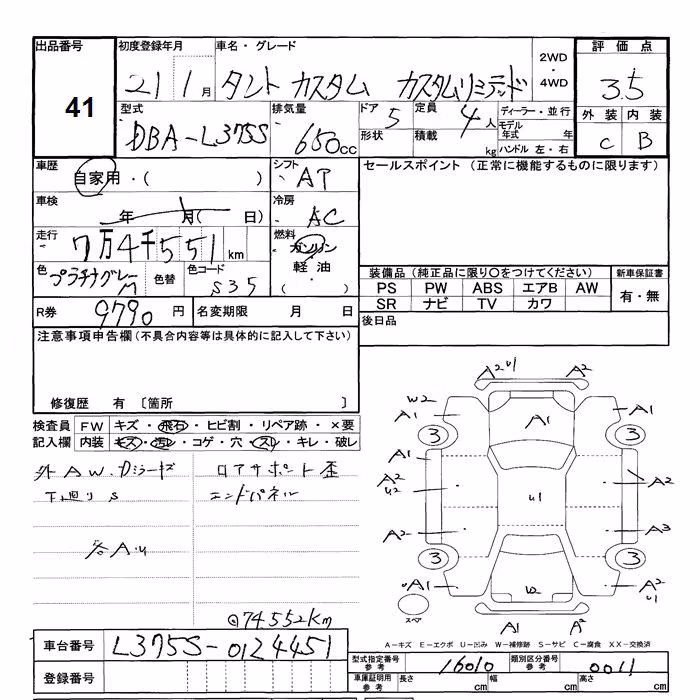 出品番号
41
初度登録年月
21 1月
車名・グレード
タント カスタム カスタムリミテッド
2WD
・
4WD
評価点
3.5
外装 内装
C B
型式
DBA-L375S
排気量
650cc
ドア 5
形状
定員 4人
積載 kg
ディーラー・並行
モデル年式 年
ハンドル 左・右
車歴
自家用・( )
シフト
AT
セールスポイント (正常に機能するものに限ります)
車検
年 月( 日)
冷房
AC
走行
7万4千551km
燃料
ガソリン
軽油
( )
色
プラチナグレーM
色替
色コード
S35
装備品(純正品に限り〇をつけてください)
新車保証書
PS PW ABS エアB AW
SR ナビ TV カワ
有・無
R券 9790円
名変期限 月 日
後日品
注意事項申告欄(不具合内容等は具体的に記入して下さい)
修復歴 有 〔箇所 〕
検査員
記入欄
FW キズ・飛石・ヒビ割・リペア跡・×要
内装 キズ・汚レ・コゲ・穴・スレ・キレ・破レ
外AW.Dミラーキズ
下廻りS
各A.U
ロアサポート歪
エンドパネル
◎74552km
A2 U1 A2
W2
A1 A1 A1
3 3
A2
U2
U1
A2
A2 A3
3 3
UA1 W2 A2
U1
スペア
A1 A2
A－キズ E－エクボ U－凹み W－補修跡 S－サビ C－腐食 XX－交換済
車台番号 L375S-0124451
登録番号
型式指定番号
参考
16010
類別区分番号
参考
0011
車庫証明用
参考
長さ cm
幅 cm
高さ cm